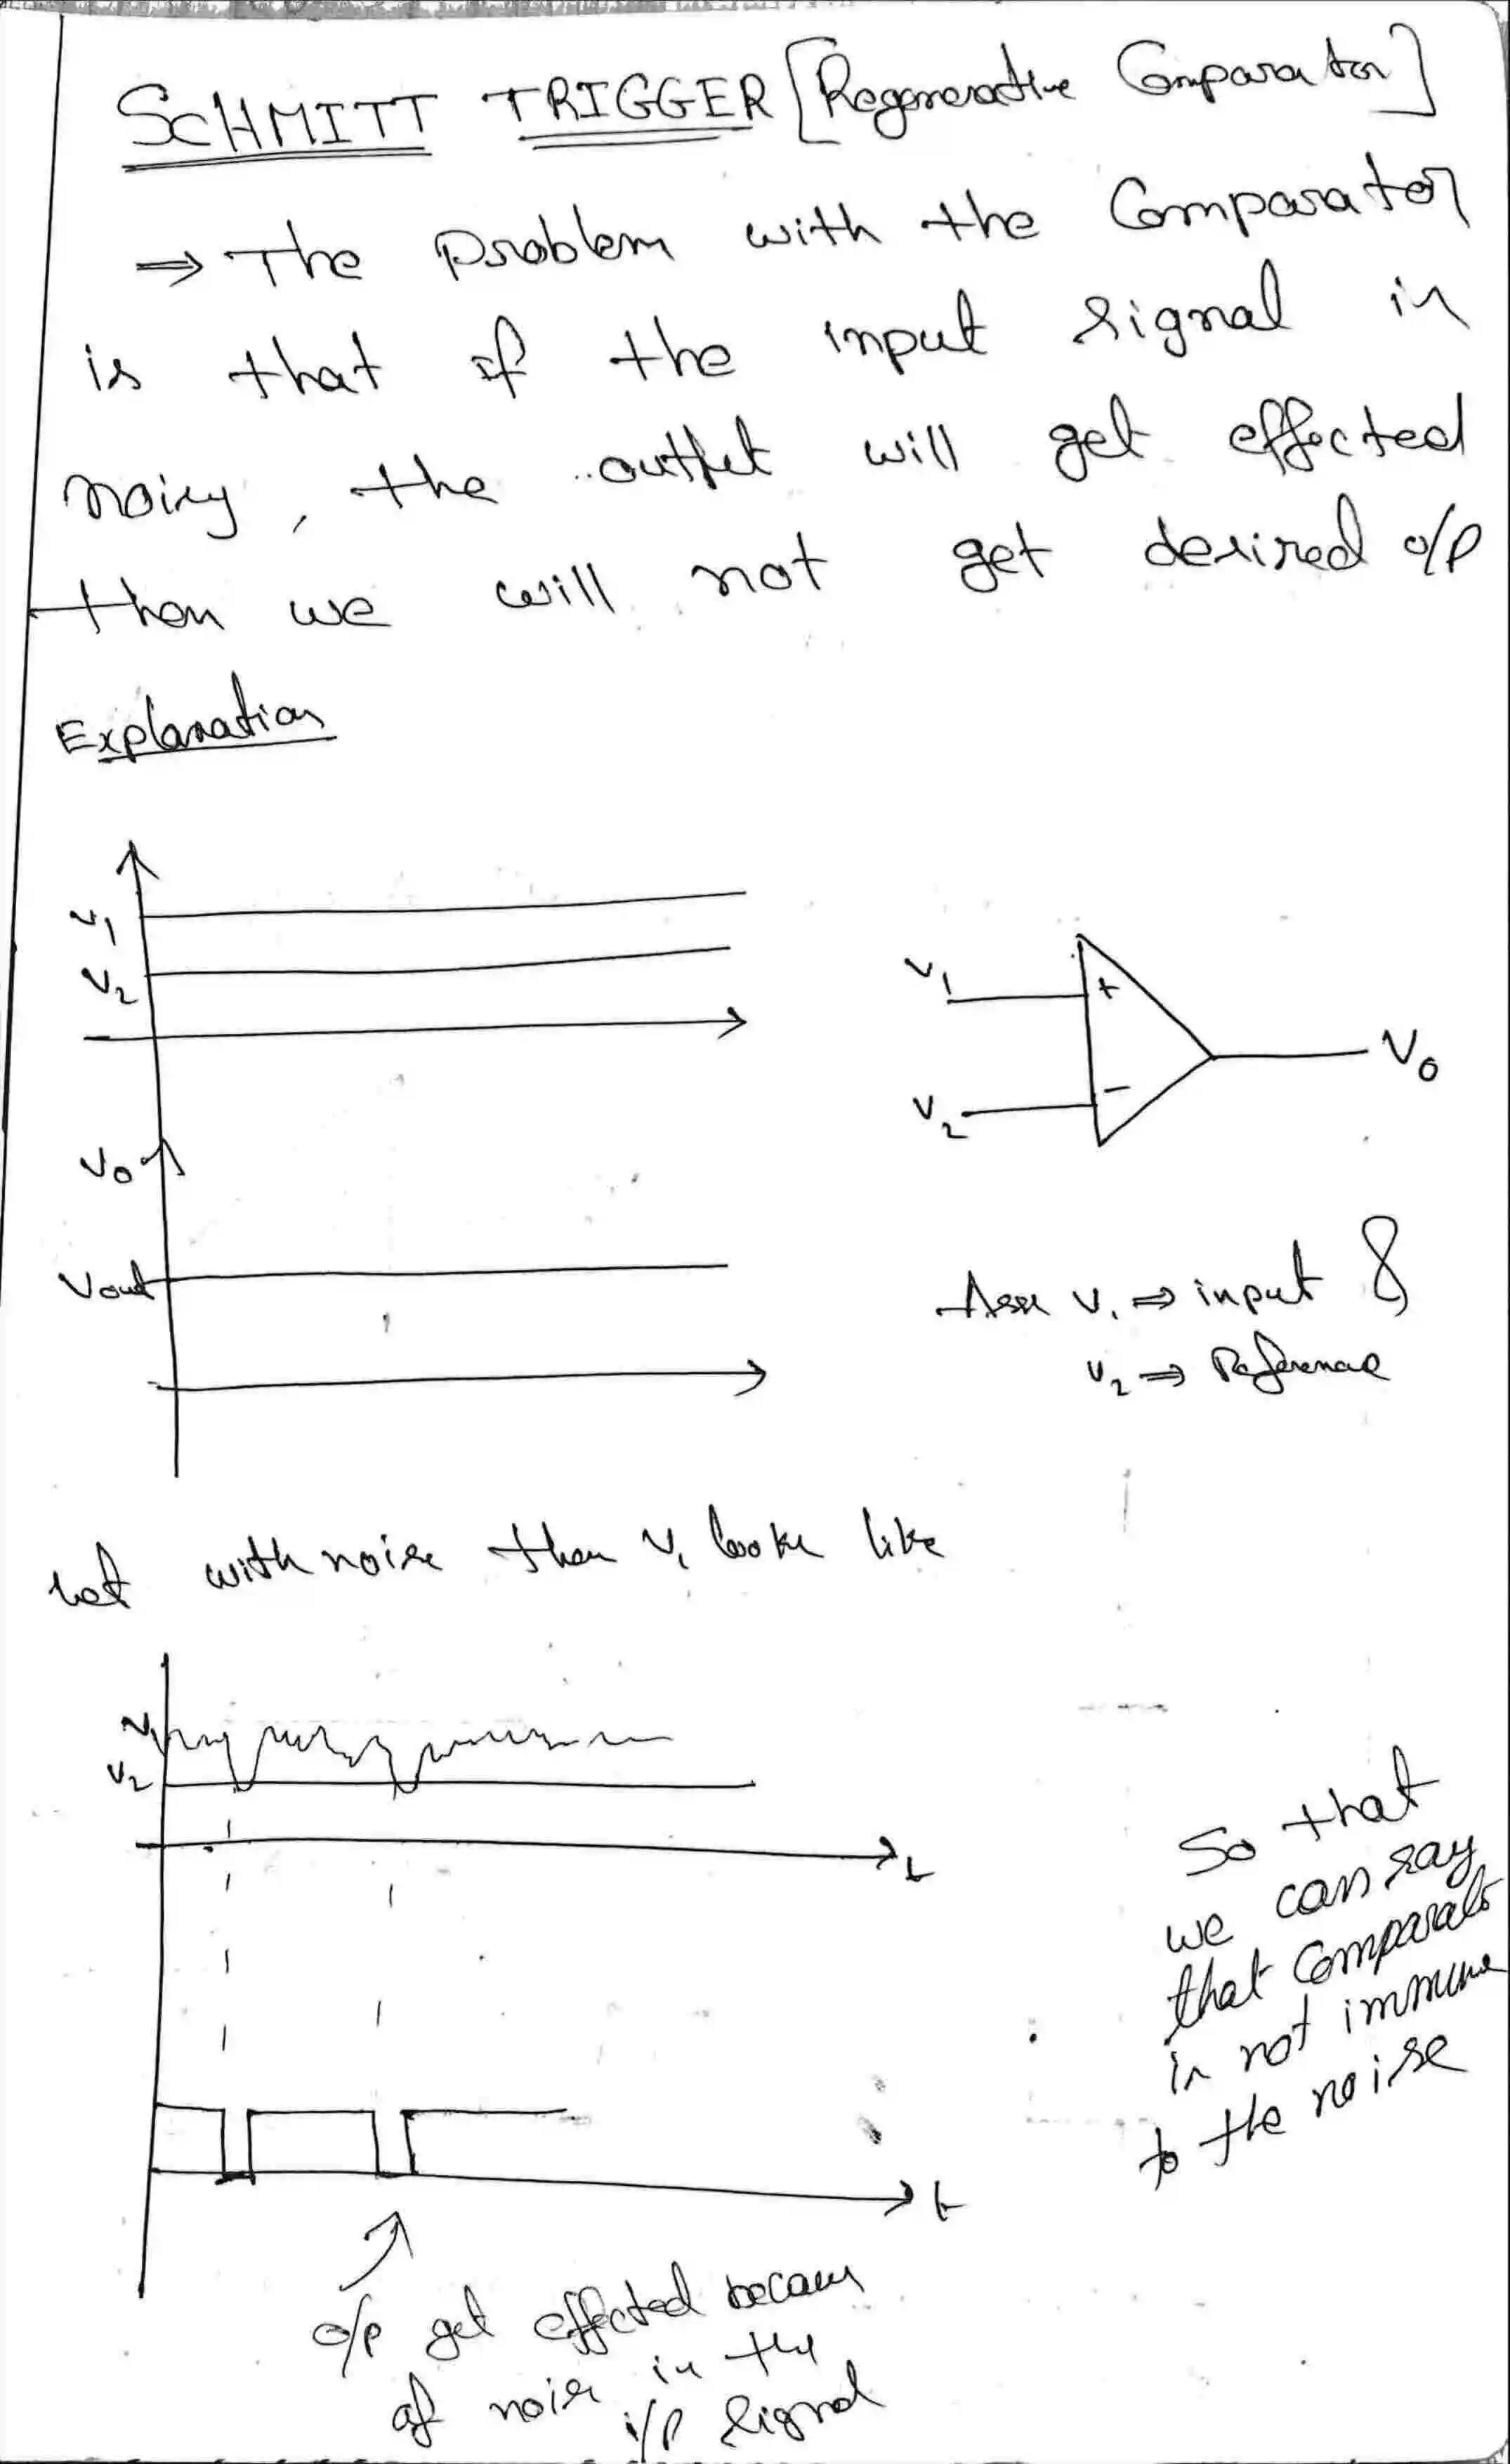 SCHMITT TRIGGER [Regenerative Comparator]
⇒ The problem with the Comparator
is that if the input signal is
noisy, the output will get effected
then we will not get desired o/p
Explanation
V1
V2
V1
+
V0
-
V2
V0
Vout
V1 ⇒ input &
V2 ⇒ Reference
let with noise then V1 looks like
V1
V2
t
So that
we can say
that Comparator
is not immune
to the noise
t
o/p get effected because
of noise in the
i/p signal